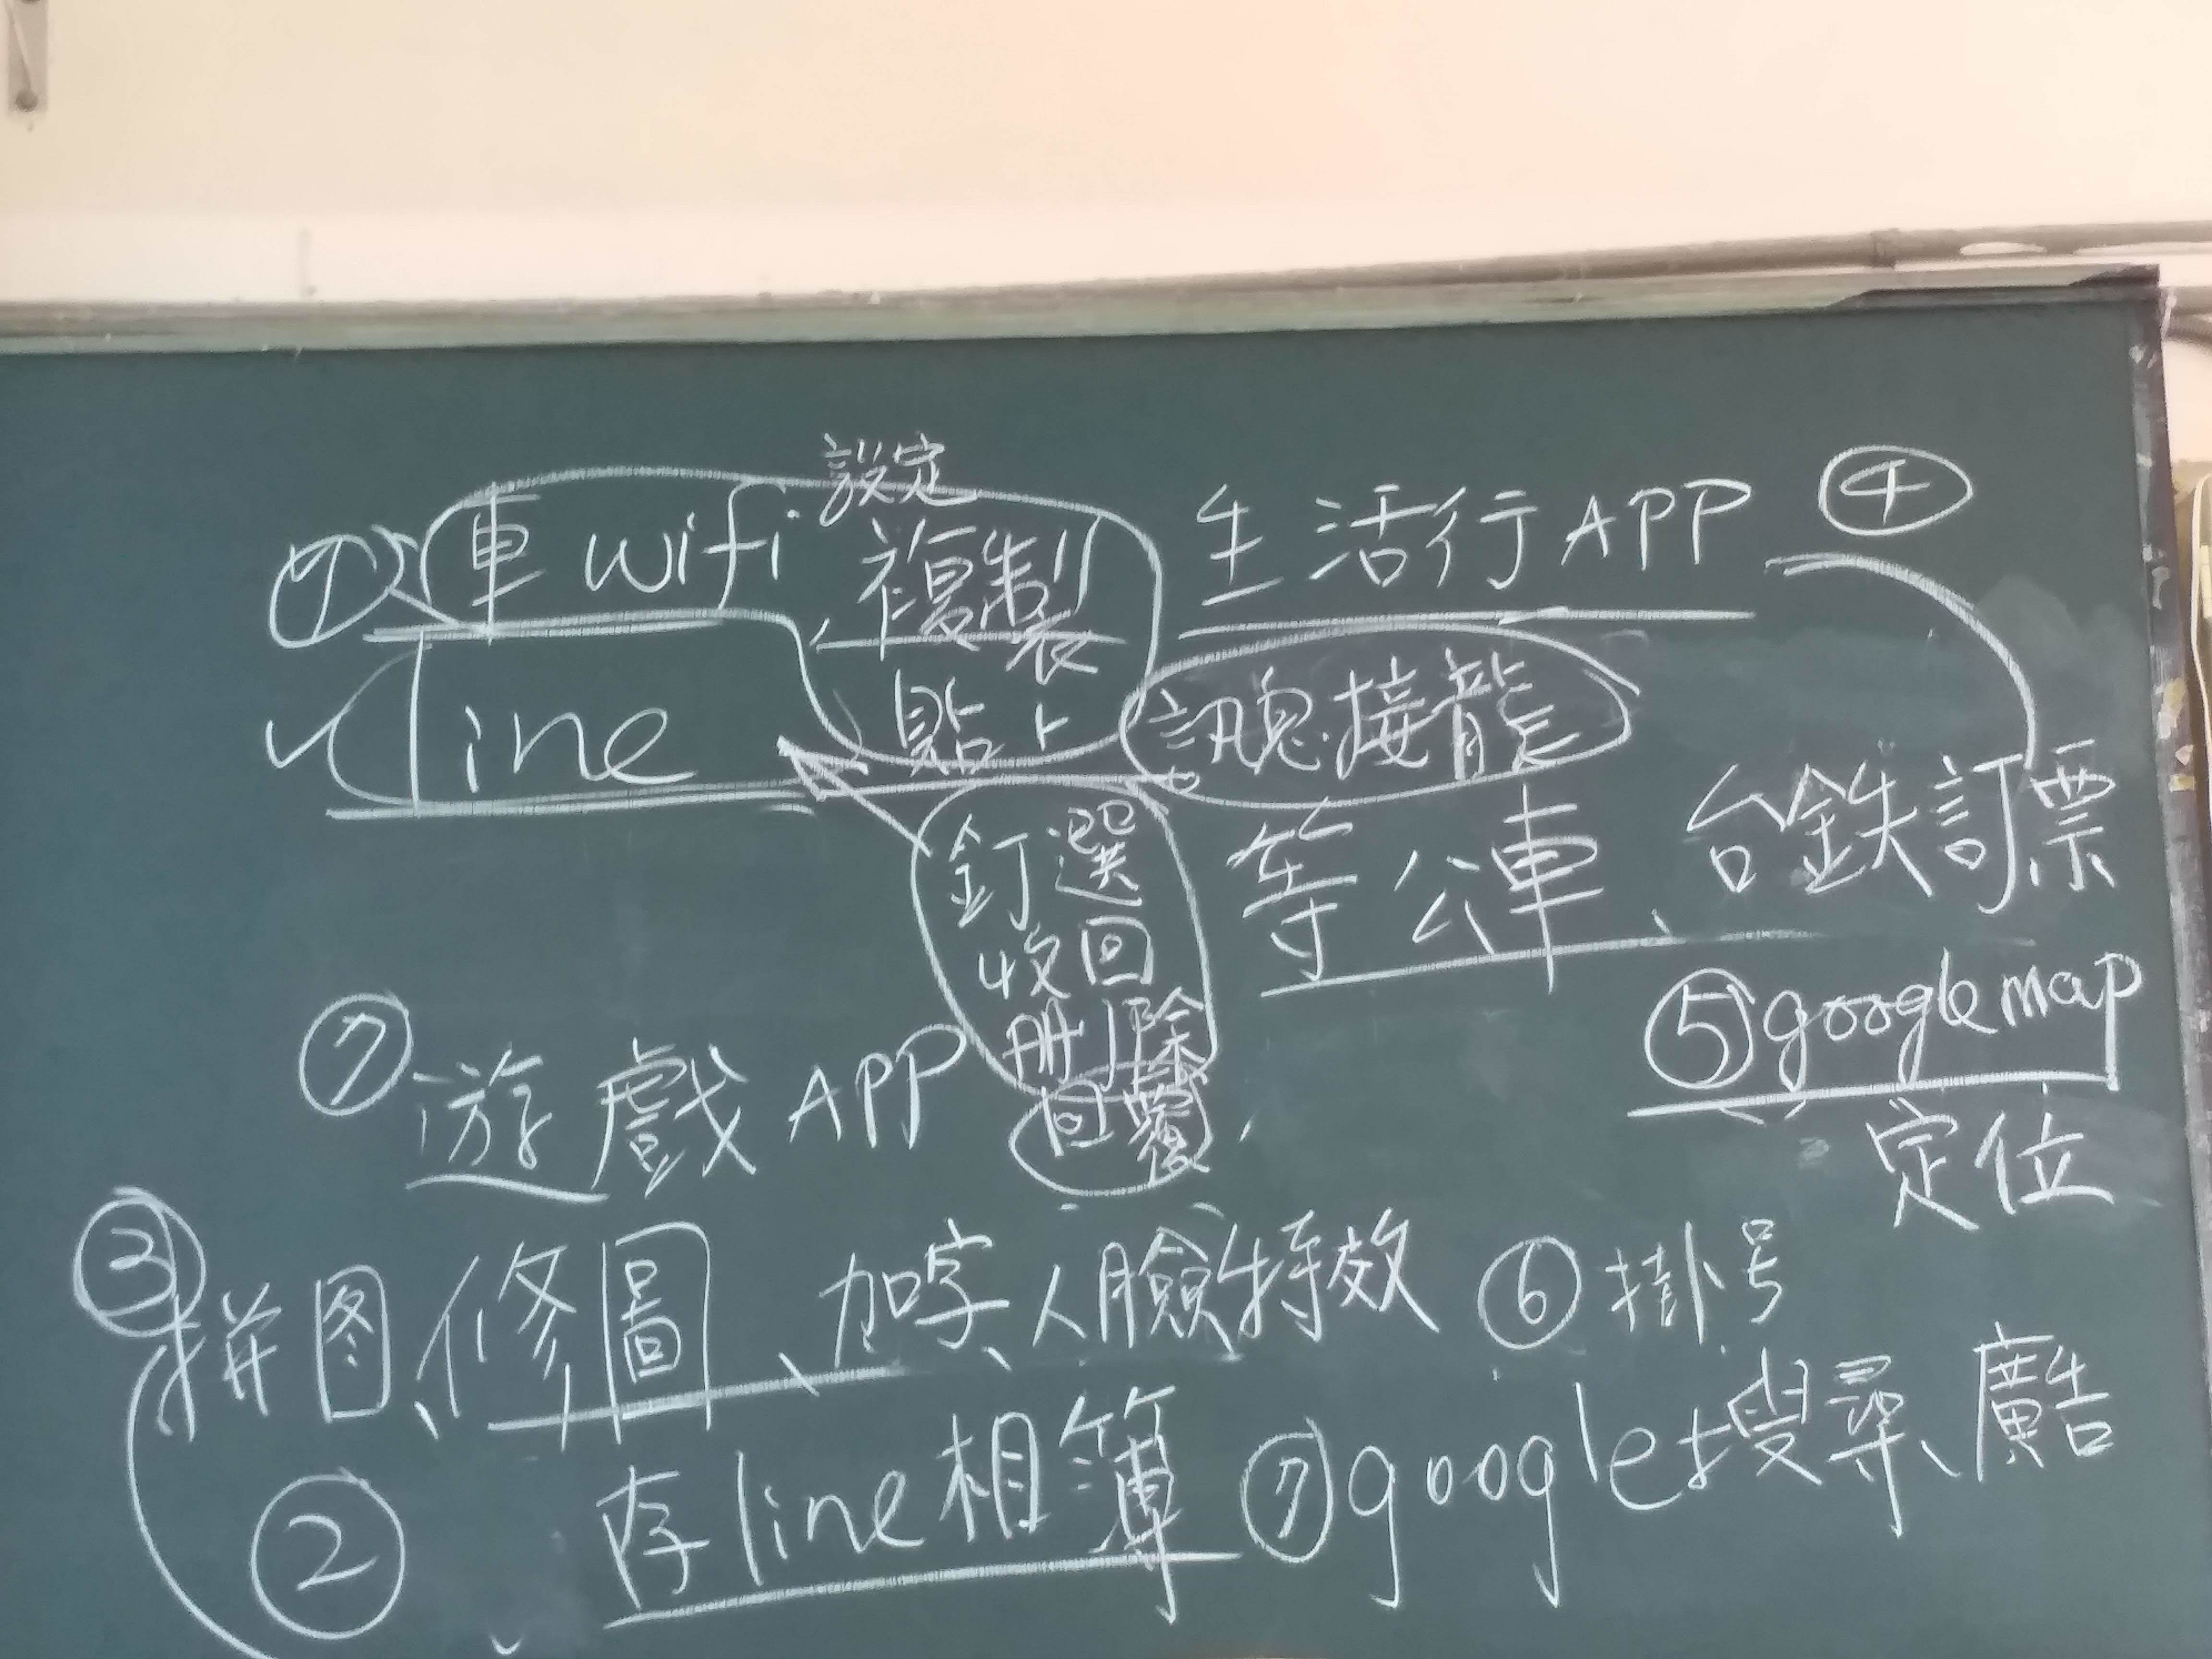 設定
① 車 wifi 複製 生活行APP ④
line 貼上 訊息接龍
釘選 等公車、台鉄訂票
收回 ⑤ google map
⑦ 遊戲 APP 刪除
回覆 定位
③ 拼图、修圖、加字、人臉特效 ⑥ 掛号
② 存line相簿 ⑦ google搜尋、廣告